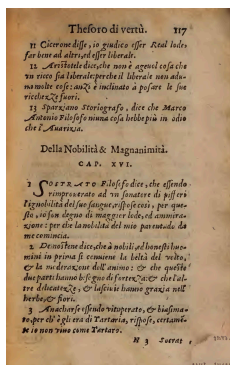 Thesoro di vertù. 117
11 Cicerone disse, io giudico esser Real lode,
far bene ad altri, ed esser liberale.
12 Aristotele dice, che non è ageuol cosa che
vn ricco sia liberale: perche il liberale non adu-
na molte cose: anzi è inclinato a posare le sue
ricchezze fuori.
13 Sparziano Storiografo, dice che Marco
Antonio Filosofo niuna cosa hebbe più in odio
che l'Auarizia.
Della Nobilità & Magnanimità.
CAP. XVI.
1 SOSTRATO Filosofo dice, che essendo
rimprouerato ad vn senatore di pifferi
l'ignobilità del suo sangue, rispose così, per que-
sto, io son degno di maggior lode, ed ammira-
zione: per che la nobilità del mio parentado da
me comincia.
2 Demostene dice, che à nobili, ed honesti huo-
mini in prima si conuiene la beltà del volto,
& la moderazione dell'animo: & che queste
due parti hanno bisogno di fortezza: & che l'al-
tre delicatezze, & lasciuie hanno grazia nell'
herbe, & fiori.
3 Anacharse essendo vituperato, & biasima-
to, per ch'egli era di Tartaria, rispose, certamē-
te io non viuo come Tartaro.
H 3 Socrat